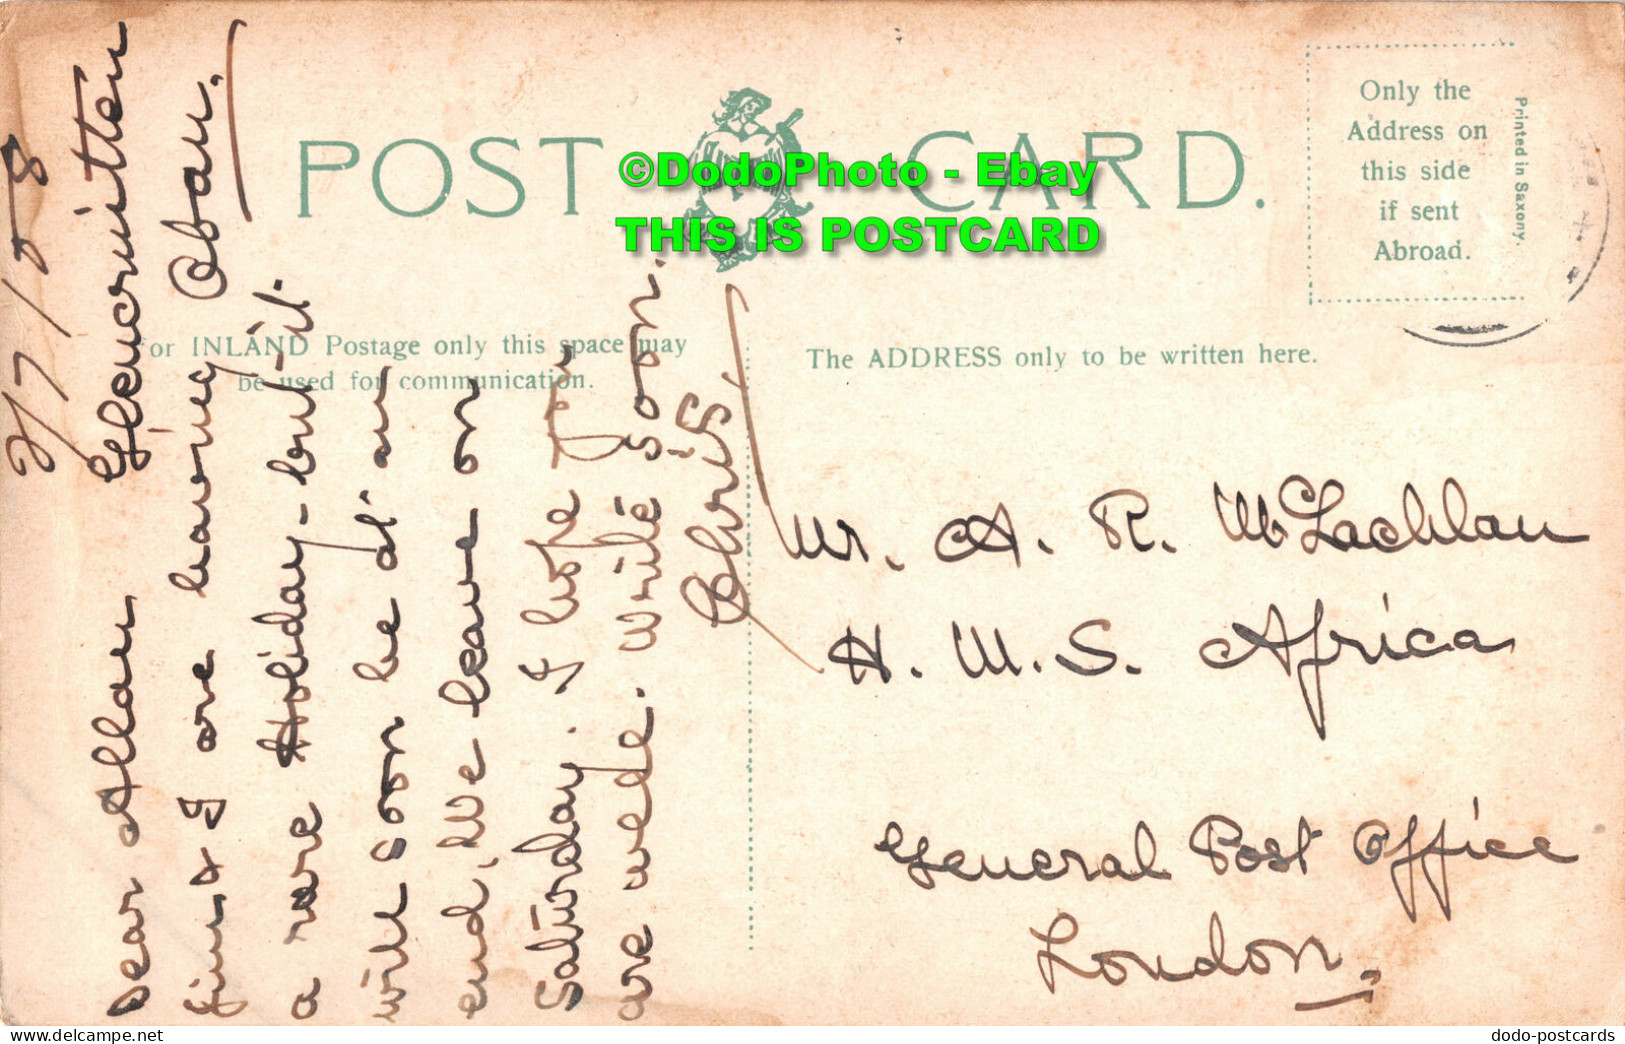 POST CARD.
©DodoPhoto - Ebay
THIS IS POSTCARD
Only the
Address on
this side
if sent
Abroad.
Printed in Saxony.
For INLAND Postage only this space may
be used for communication.
The ADDRESS only to be written here.
2/7/08
Glencruitten
Oban.
Dear Allan
Jim & I are having
a rare Holiday - but it
will soon be at an
end, We leave on
Saturday. I hope you
are well. Write soon.
Chris.
Mr. A. R. McLachlan
H. M. S. Africa
General Post Office
London,
www.delcampe.net
dodo-postcards